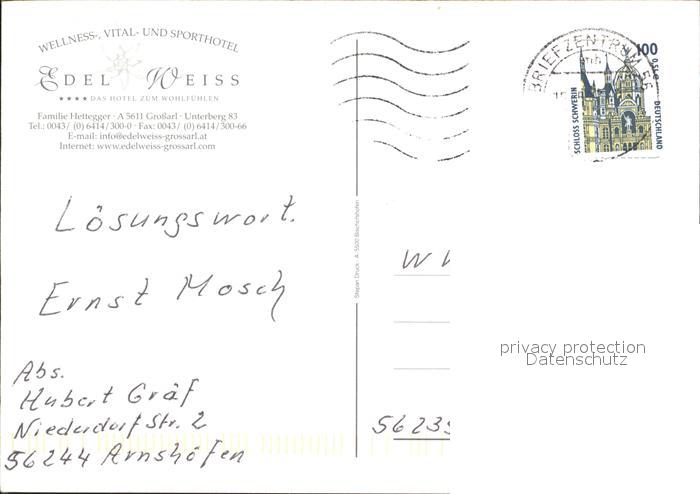 WELLNESS-, VITAL- UND SPORTHOTEL
EDEL WEISS
★★★★ DAS HOTEL ZUM WOHLFÜHLEN
Familie Hettegger · A 5611 Großarl · Unterberg 83
Tel.: 0043/ (0) 6414/300-0 · Fax: 0043/ (0) 6414/300-66
E-mail: info@edelweiss-grossarl.at
Internet: www.edelweiss-grossarl.com
Lösungswort.
Ernst Mosch
Abs.
Hubert Gräf
Niederdorf Str. 2
56244 Arnshöfen
Stepan Druck · A 5500 Bischofshofen
BRIEFZENTRUM 56
100
0,51 €
SCHLOSS SCHWERIN
DEUTSCHLAND
W
privacy protection
Datenschutz
5623